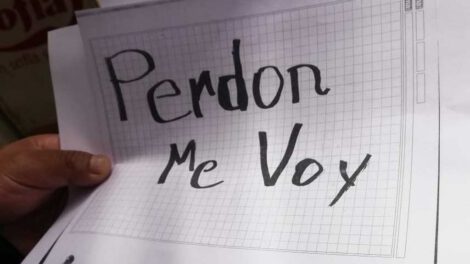 Perdon
Me Voy